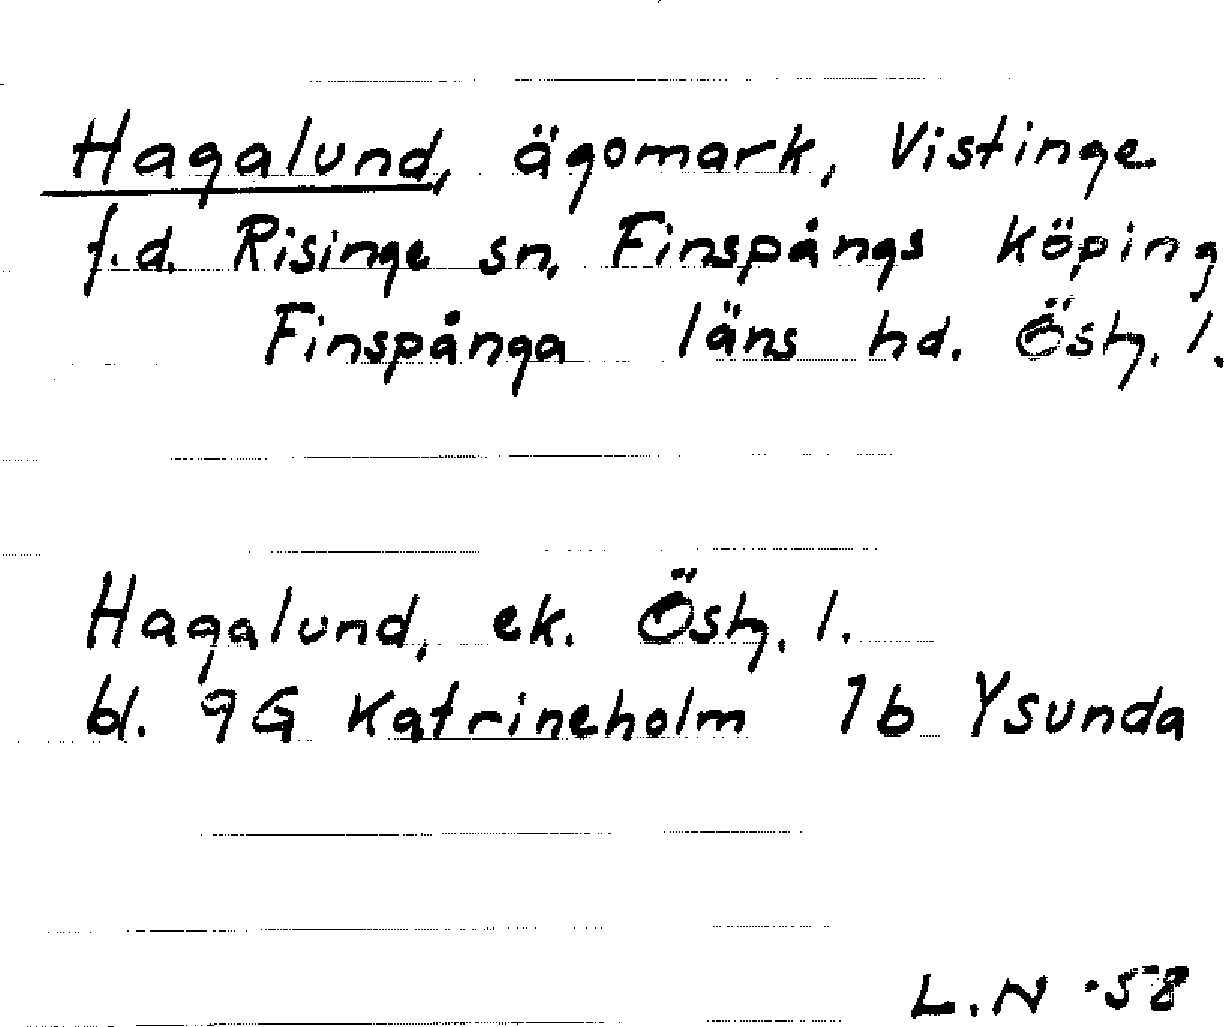 Hagalund, ägomark, Vistinge
f.d. Risinge sn, Finspångs köping
Finspånga läns hd. Östg. l.
Hagalund, ek. Östg. l.
bl. 9G Katrineholm 1b Ysunda
L.N -58